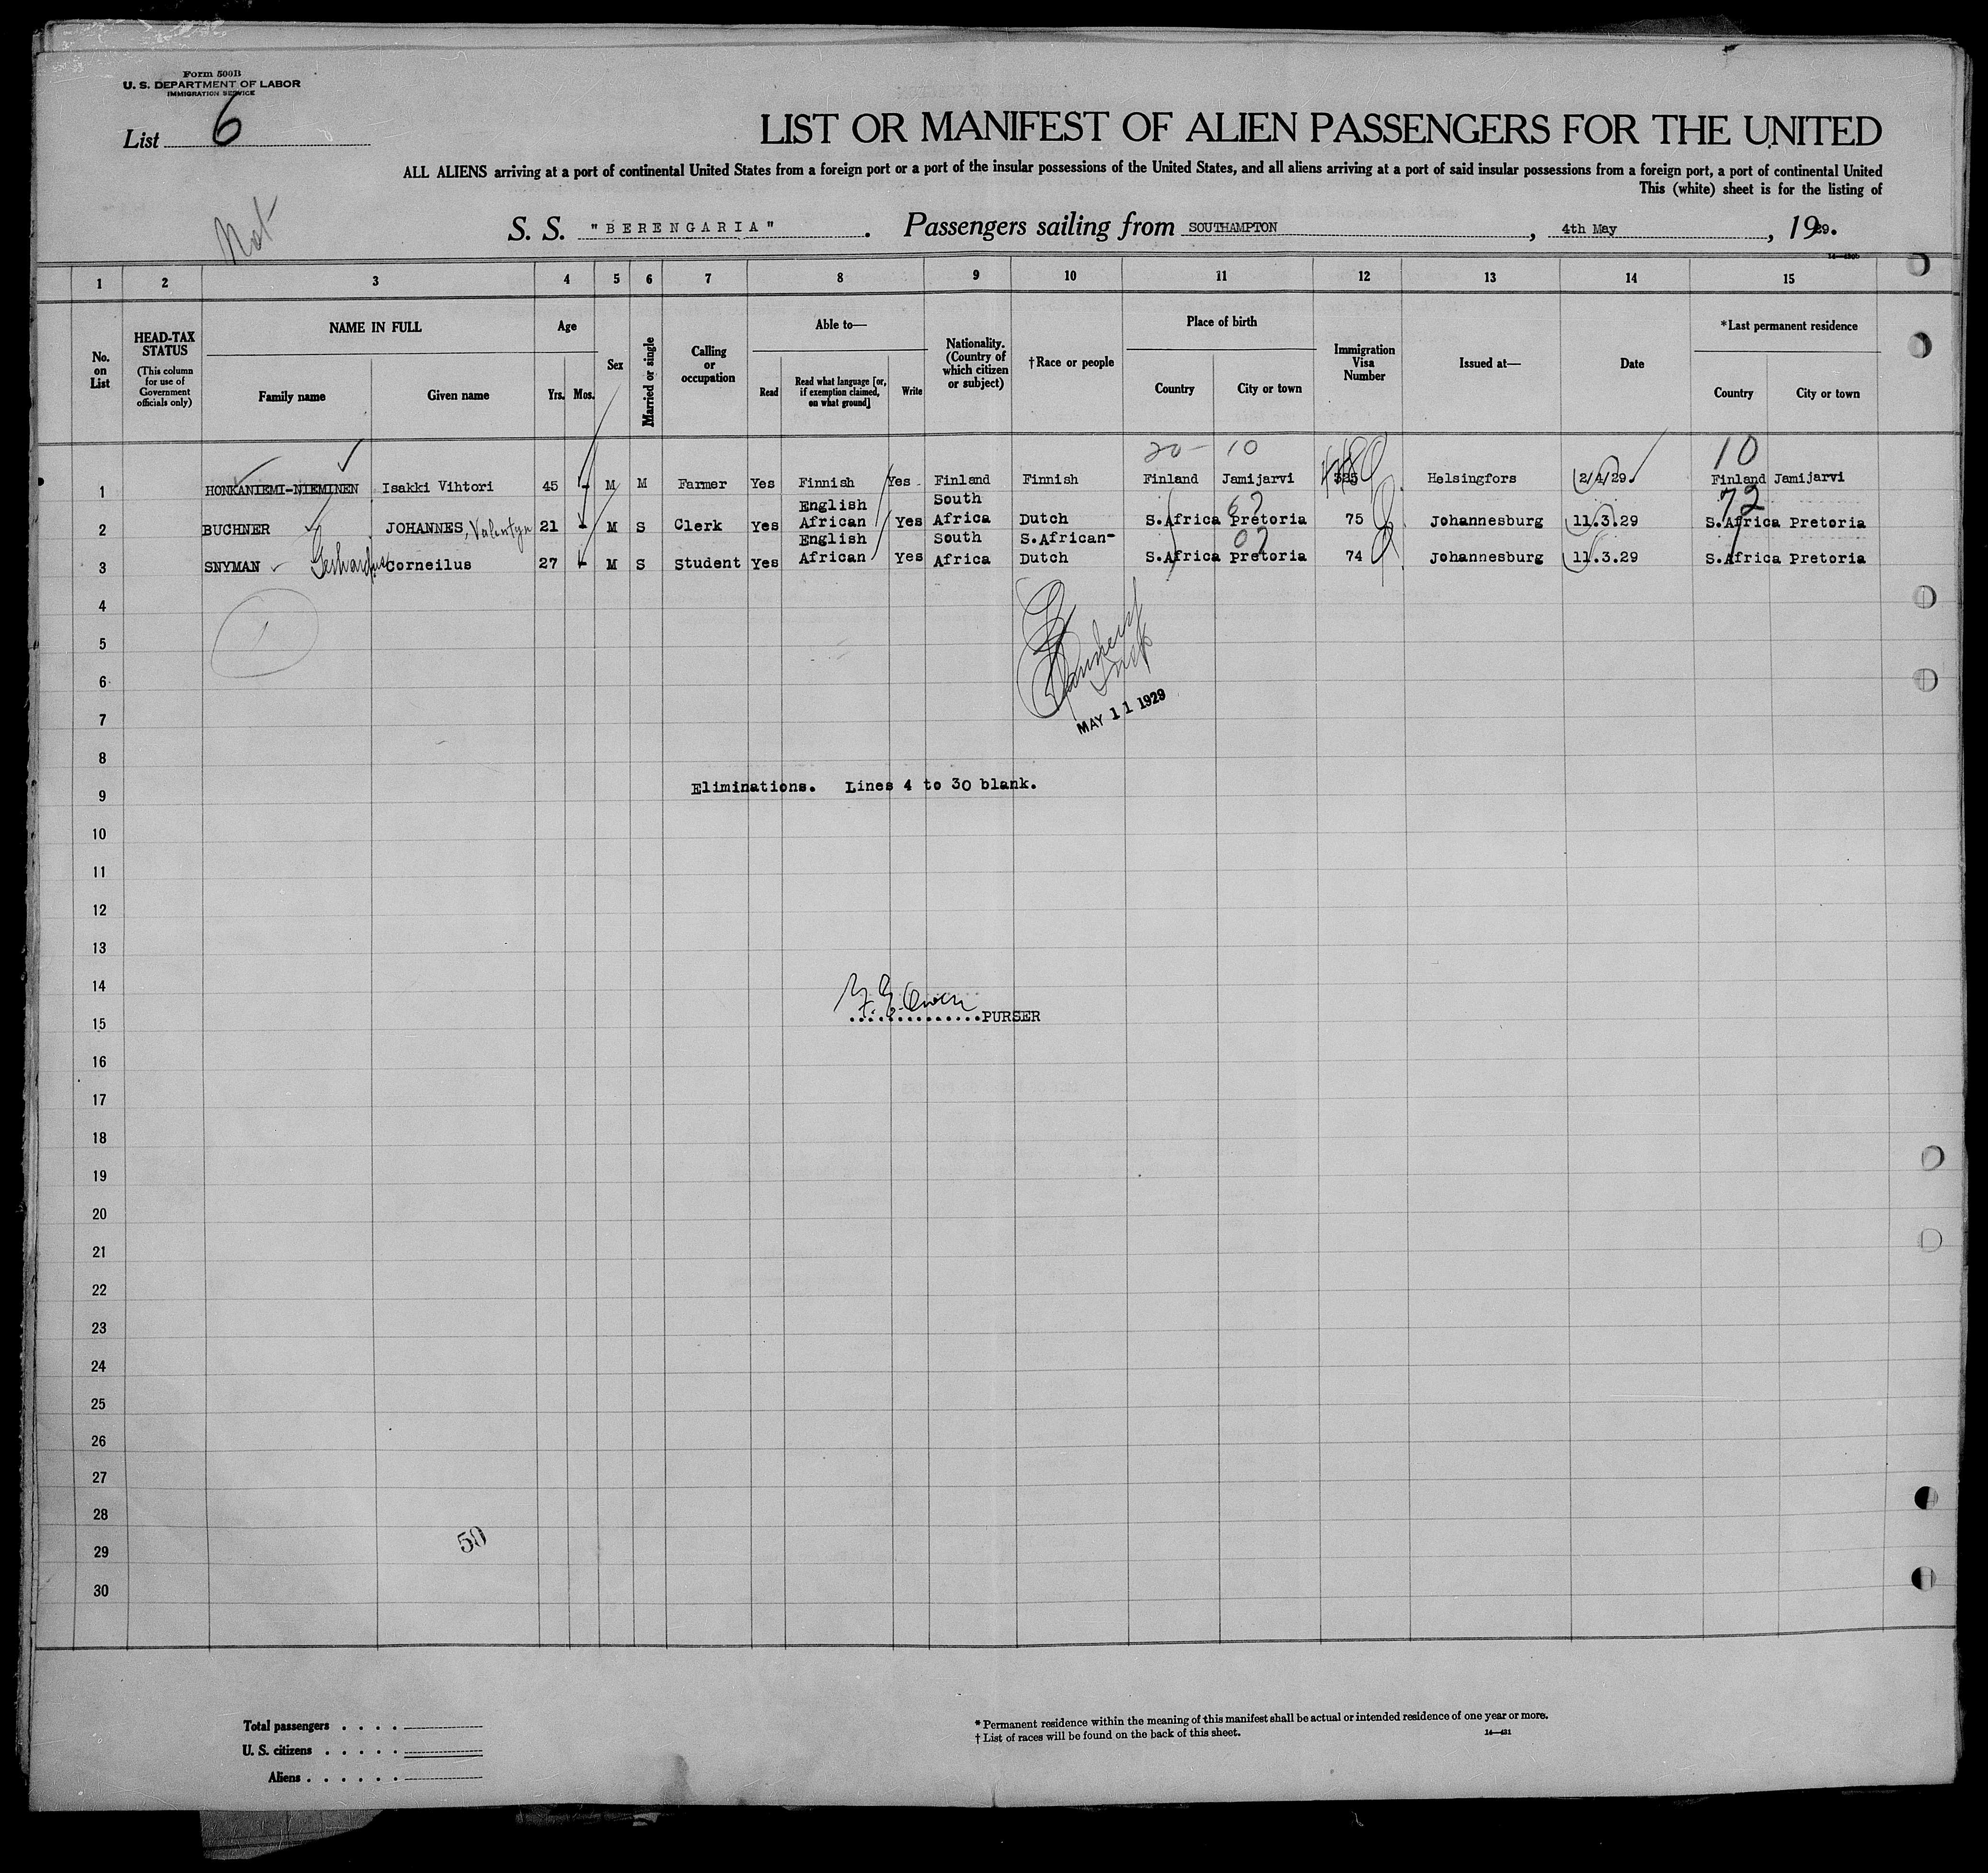 Form 500B
U. S. DEPARTMENT OF LABOR
IMMIGRATION SERVICE
List 6
LIST OR MANIFEST OF ALIEN PASSENGERS FOR THE UNITED
ALL ALIENS arriving at a port of continental United States from a foreign port or a port of the insular possessions of the United States, and all aliens arriving at a port of said insular possessions from a foreign port, a port of continental United
This (white) sheet is for the listing of
S. S. "BERENGARIA". Passengers sailing from SOUTHAMPTON, 4th May, 1929.
1 2 3 4 5 6 7 8 9 10 11 12 13 14 15
No. on List
HEAD-TAX STATUS
(This column for use of Government officials only)
NAME IN FULL
Family name Given name
Age
Yrs. Mos.
Sex
Married or single
Calling or occupation
Able to—
Read
Read what language [or, if exemption claimed, on what ground]
Write
Nationality. (Country of which citizen or subject)
†Race or people
Place of birth
Country City or town
Immigration Visa Number
Issued at—
Date
*Last permanent residence
Country City or town
20 - 10 10
1 HONKANIEMI-NIEMINEN Isakki Vihtori 45 - M M Farmer Yes Finnish Yes Finland Finnish Finland Jamijarvi 325 Helsingfors 2/4/29 Finland Jamijarvi
72
2 BUCHNER JOHANNES, Valentyn 21 - M S Clerk Yes English African Yes South Africa Dutch S.Africa Pretoria 75 Johannesburg 11.3.29 S.Africa Pretoria
3 SNYMAN Gerhardus Corneilus 27 - M S Student Yes English African Yes South Africa S.African-Dutch S.Africa Pretoria 74 Johannesburg 11.3.29 S.Africa Pretoria
4
5
6
7
MAY 11 1929
8
Eliminations. Lines 4 to 30 blank.
9
10
11
12
13
14
15
Owen
PURSER
16
17
18
19
20
21
22
23
24
25
26
27
28
50
29
30
Total passengers . . . .
U. S. citizens . . . . .
Aliens . . . . . .
* Permanent residence within the meaning of this manifest shall be actual or intended residence of one year or more.
† List of races will be found on the back of this sheet.
14—431